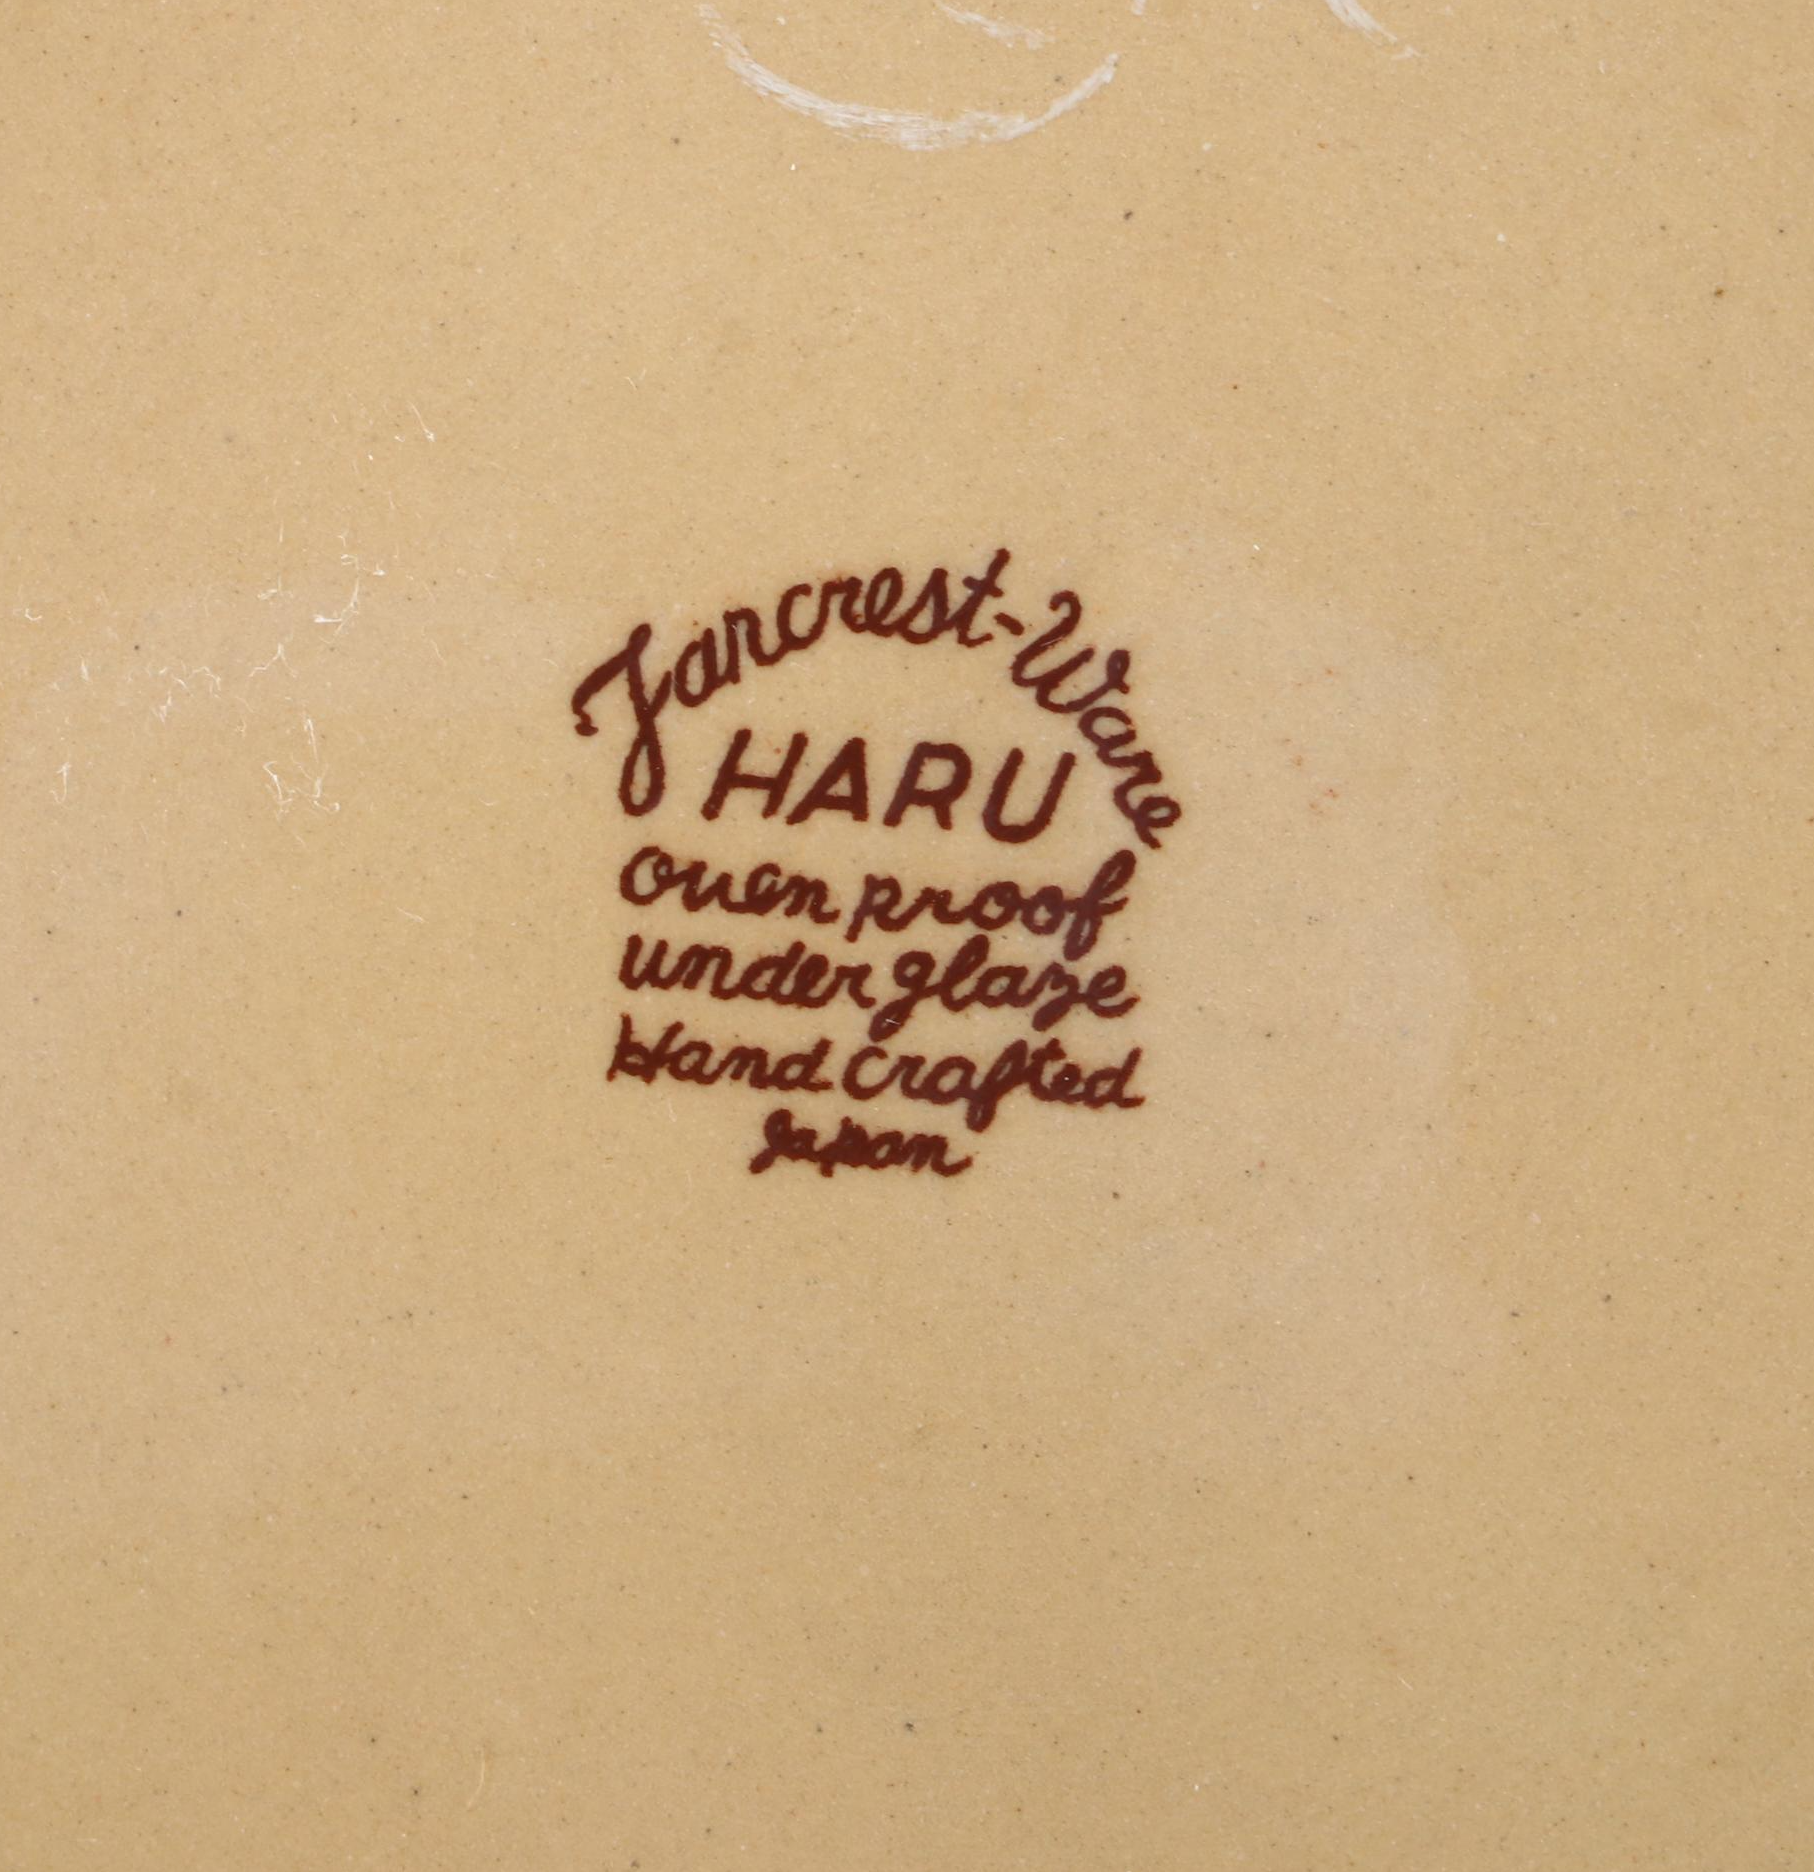 Jancrest-Ware
HARU
oven proof
under glaze
Hand crafted
Japan